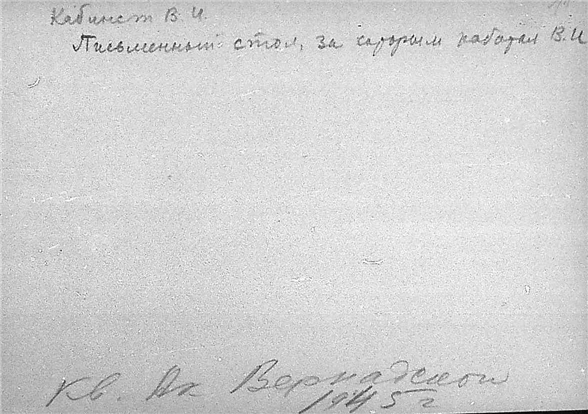 Кабинет В. И.
Письменный стол, за которым работал В. И
Кв. Ак Вернадской
1945 г